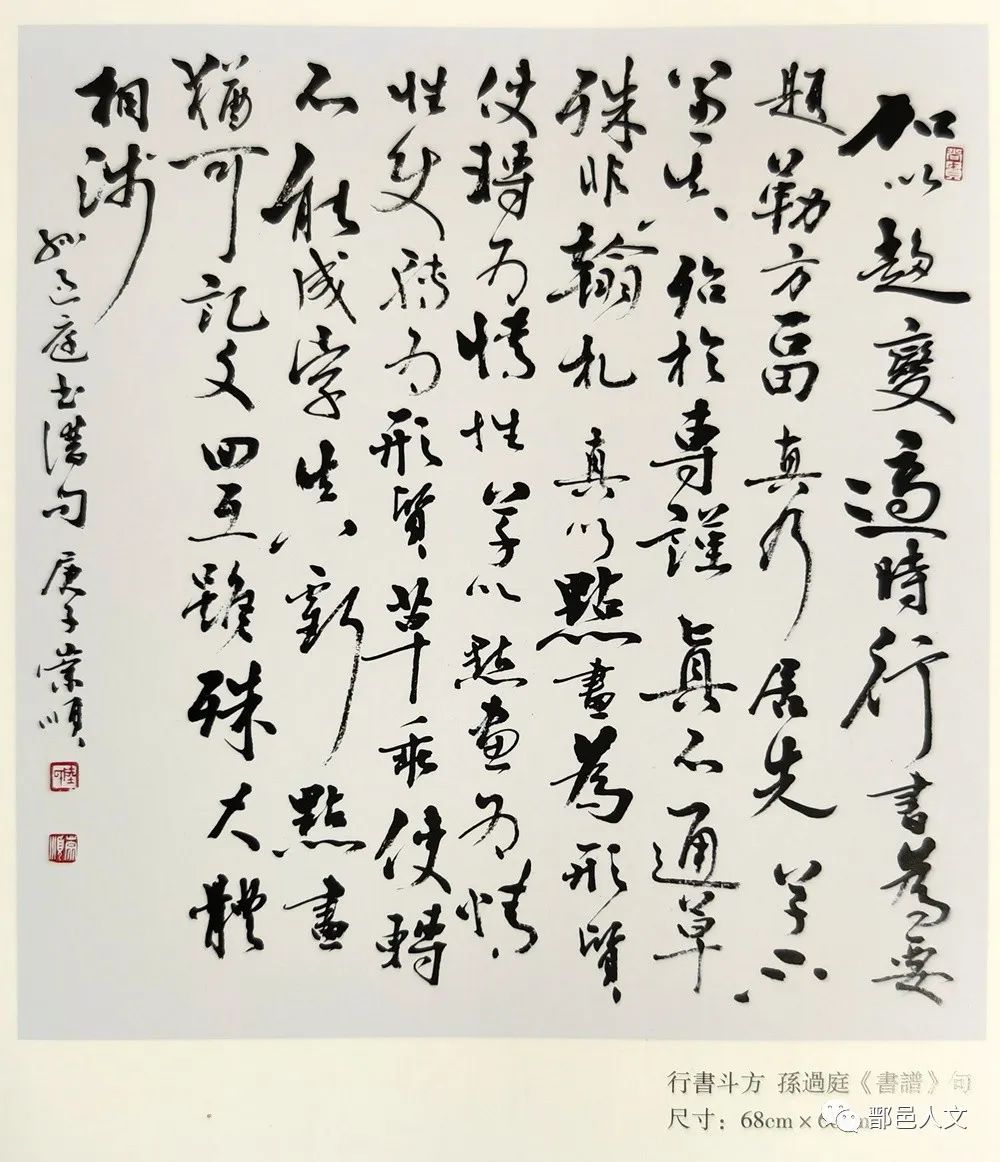 加以趍變適時行書為要
題勒方畐真乃居先草不
兼真殆於專謹真不通草
殊非翰札真以點畫為形質
使轉為情性草以點畫為情
性使轉為形質草乖使轉
不能成字真虧點畫
猶可記文回互雖殊大體
相涉
孫過庭書譜句 庚子崇順
崇順
行書斗方 孫過庭《書譜》句
尺寸：68cm×6
鄑邑人文